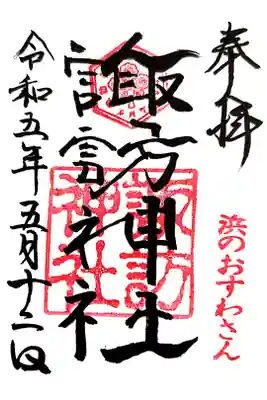 奉拝
浜のおすわさん
諏訪神社
諏訪
神社
令和五年五月十二日